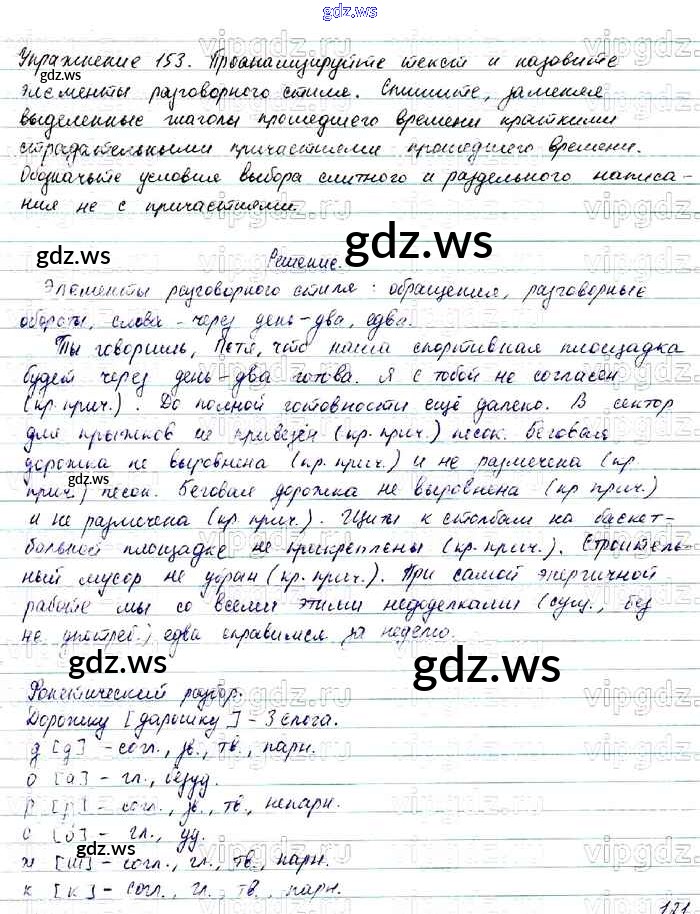 gdz.ws
Упражнение 153. Проанализируйте текст и назовите
элементы разговорного стиля. Спишите, заменяя
выделенные глаголы прошедшего времени краткими
страдательными причастиями прошедшего времени.
Обозначьте условия выбора слитного и раздельного написа-
ния не с причастиями.
gdz.ws
gdz.ws
gdz.ws
Решение.
Элементы разговорного стиля: обращения, разговорные
обороты, слова - через день-два, едва.
Ты говоришь, Петя, что наша спортивная площадка
будет через день-два готова. Я с тобой не согласен
(кр. прич.). До полной готовности ещё далеко. В сектор
для прыжков не привезён (кр. прич.) песок. Беговая
дорожка не выровнена (кр. прич.) и не размечена (кр.
прич.) песок. Беговая дорожка не выровнена (кр прич.)
gdz.ws
и не размечена (кр. прич.). Щиты к столбам на баскет-
больной площадке не прикреплены (кр. прич.). Строитель-
gdz.ws
ный мусор не убран (кр. прич.). При самой энергичной
работе мы со всеми этими недоделками (сущ., без
не употреб.) едва справимся за неделю.
gdz.ws
gdz.ws
Фонетический разбор.
Дорожку [дарошку] - 3 слога.
д [д] - согл., зв., тв., парн.
о [а] - гл., безуд.
р [р] - согл., зв., тв., непарн.
о [о] - гл., уд.
ж [ш] - согл., гл., тв., парн.
к [к] - согл., гл., тв., парн.
gdz.ws
gdz.ws
121